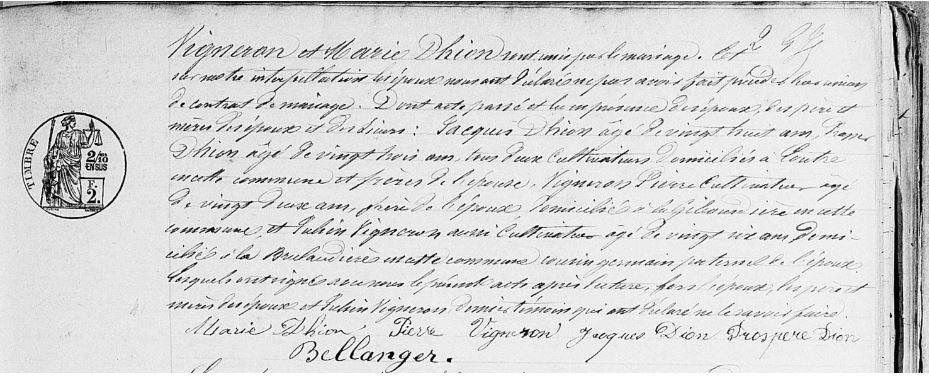 Vigneron et Marie Dhion sont unis par le mariage. Et
sur notre interpellation les époux nous ont déclaré ne pas avoir fait précéder leur union
de contrat de mariage. Dont acte passé en la présence des époux, des père et
mères des époux et des sieurs : Jacques Dhion âgé de vingt huit ans, Prosper
Dhion âgé de vingt trois ans, tous deux Cultivateurs domiciliés à
en cette commune et frères de l'épouse, Vigneron Pierre Cultivateur âgé
de vingt deux ans, frère de l'époux domicilié à la en cette
commune, et Aubin Vigneron aussi Cultivateur âgé de vingt six ans domi-
cilié à la en cette commune cousin germain paternel de l'époux.
Lesquels ont signé avec nous le présent acte après lecture, fors l'époux, les père et
mères des époux et Aubin Vigneron, dernier témoin qui ont déclaré ne le savoir faire.
Marie Dhion Pierre Vigneron Jacques Dion Prospere Dion
Bellanger.
TIMBRE
2/10
EN SUS
F.
2.